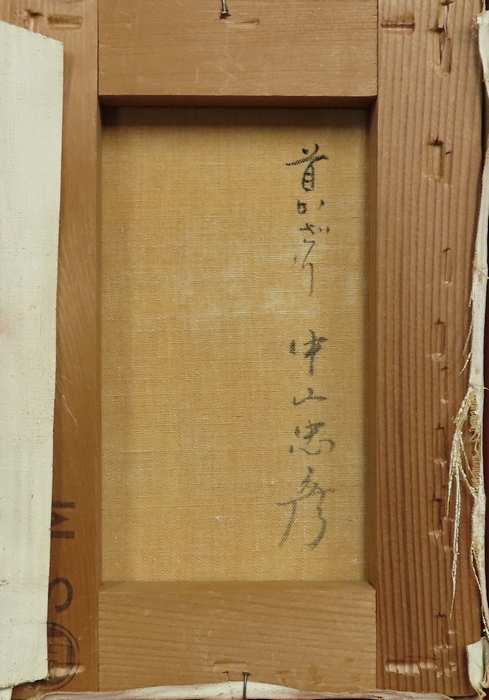 首かざり 中山忠彦
S M